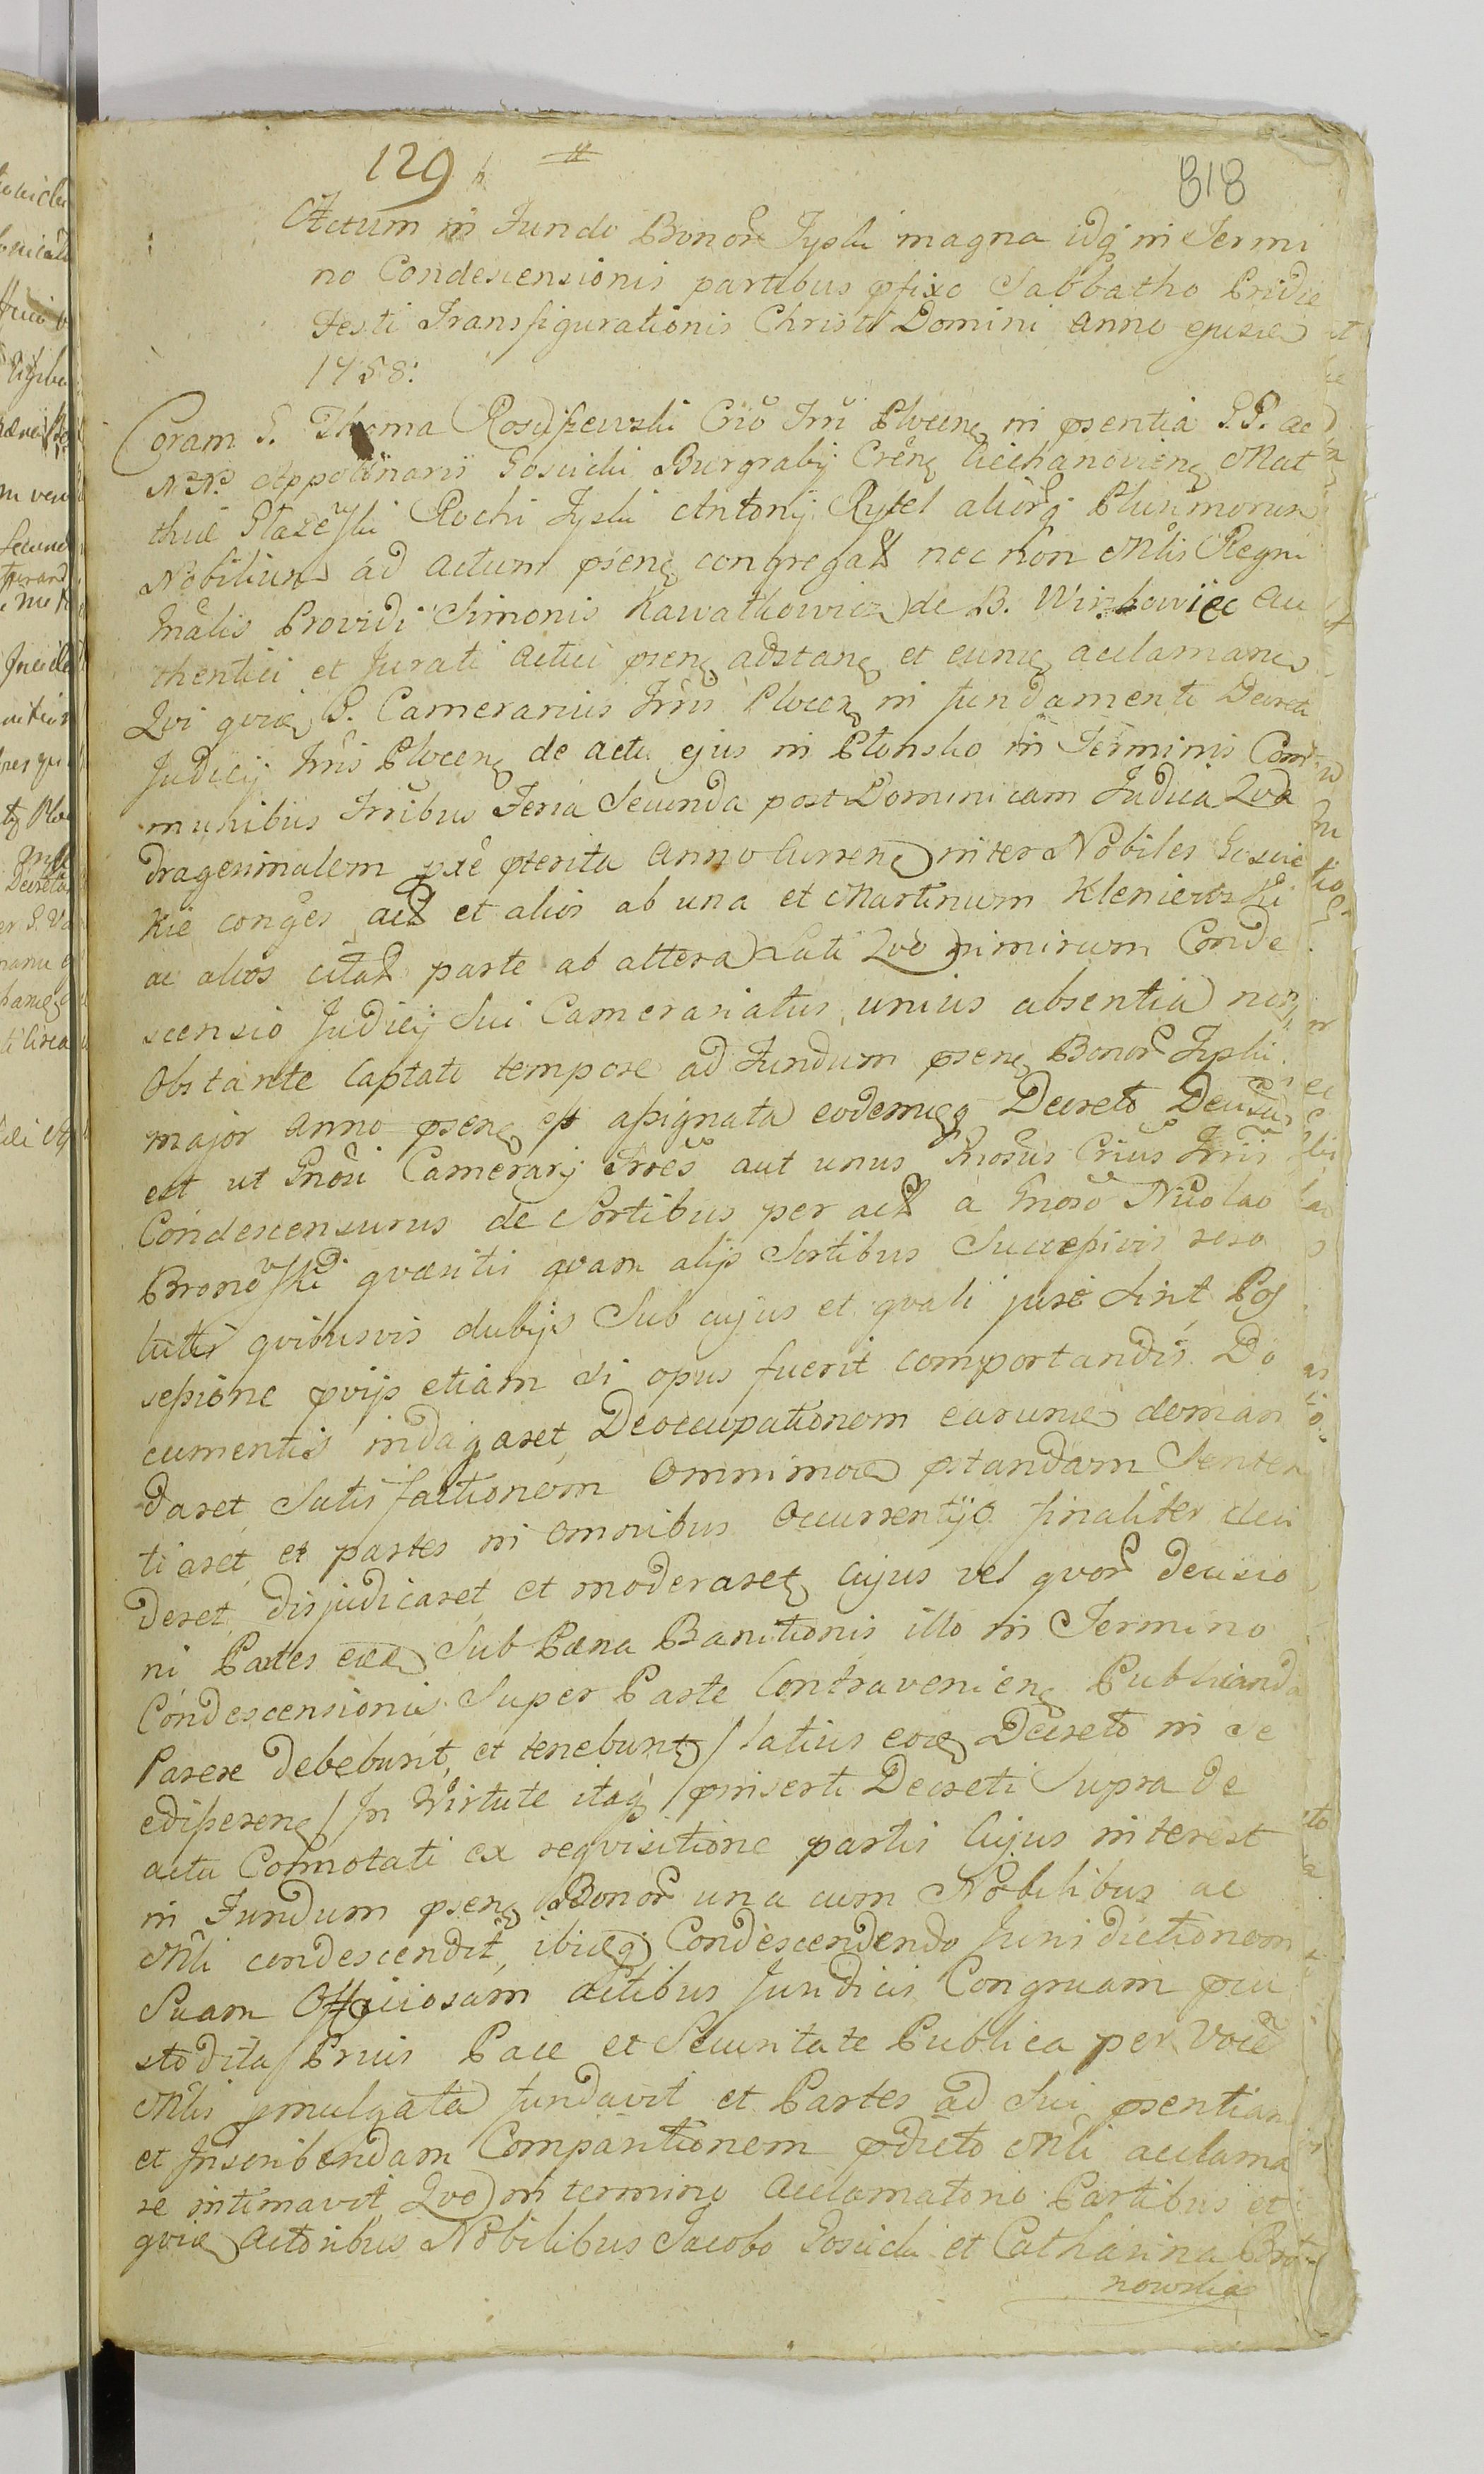 129
818
Actum in Fundo Bonor Tyslu magna idq in Termi
no Condescensionis partibus pfixo Sabbatho Pridie
Festi Transfigurationis Christi Domini Anno
1758:
Coram G. Thoma Rosciszewski Crio Trri Plocen in psentia G.G. ac
NN. Appolinarii Gosicki Burgrabij Cren Ciechanovien Mat
thiæ Rochi Tyslu Antonij Rytel aliorq Plurimorum
Nobilium ad actum psen congregat nec non Mlis Regni
Gnalis Providi Simonis Kawalkowicz de B. Au
thentici et Jurati actui psen adstan et eum acclaman
Qvi qvid G. Camerarius Trris Plocen in fundamento Decreti
Judicij Trris Plocen de actu ejus in Plonsko in Terminis Com
munibus Trribus Feria Secunda post Dominicam Judica Qva
dragesimalem pterita Anno Curren inter Nobiles Gosic
kie conges act et alios ab una et Martinum Kleniewski
ac alios citat parte ab altera Lati Qvo nimirum Conde
scensio Judicij Sui Camerariatus unius absentia non
Obstante Captato tempore ad Fundum psen Bonor Tyslu
major Anno psen est assignata eodemq Decreto Decisu
est ut Gnosi Camerarij Trres aut unus Gnosus Crius Trris
Condescensurus de Sortibus per act a Gnoso Nicolao
Bronowski qvæsitis qvam alijs Sortibus Successivis reso
lutis qvibusvis dubijs Sub cujus et qvali jure sint Pos
sessione pvijs etiam si opus fuerit comportandis Do
cumentis indagaret Deoccupationem earum deman
daret Satisfactionem Omnimod pstandam Senten
tiaret et partes in omnibus Occurrentijs finaliter deci
deret disjudicaret et moderaret Cujus vel qvor decisio
ni Partes Sub Pæna Banitionis illo in Termino
Condescensionis Super Parte Contravenien Publicanda
Parere debebunt et tenebunt / latius Decreto in se
edisseren / In Virtute itaq pinserti Decreti Supra de
actu Connotati ex reqvisitione partis Cujus interest
in Fundum psen Bonor una cum Nobilibus ac
Mli condescendit, ibidq Condescendendo Jurisdictionem
Suam Officiosam actibus Juridicis Congruam pcu
stodita Prius Pace et Securitate Publica per Voce
Mlis pmulgata fundavit et Partes ad Sui psentiam
et Inscribendam Comparitionem pdicto Mli acclama
re intimavit Qvo in termino acclamatorio Partibus et
qvid Actoribus Nobilibus Jacobo Gosicki et Catharina Bro
nowska